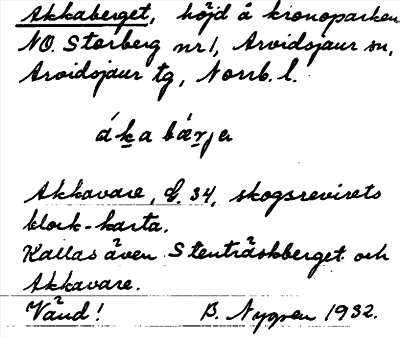 Akkaberget, höjd å kronoparken
NO. Storberg nr 1, Arvidsjaur sn,
Arvidsjaur tg, Norrb. l.
áka bárjer
Akkavare, G. 34, skogsrevirets
block-karta.
Kallas även Stenträskberget och
Akkavare.
Vänd! B. Nygren 1932.